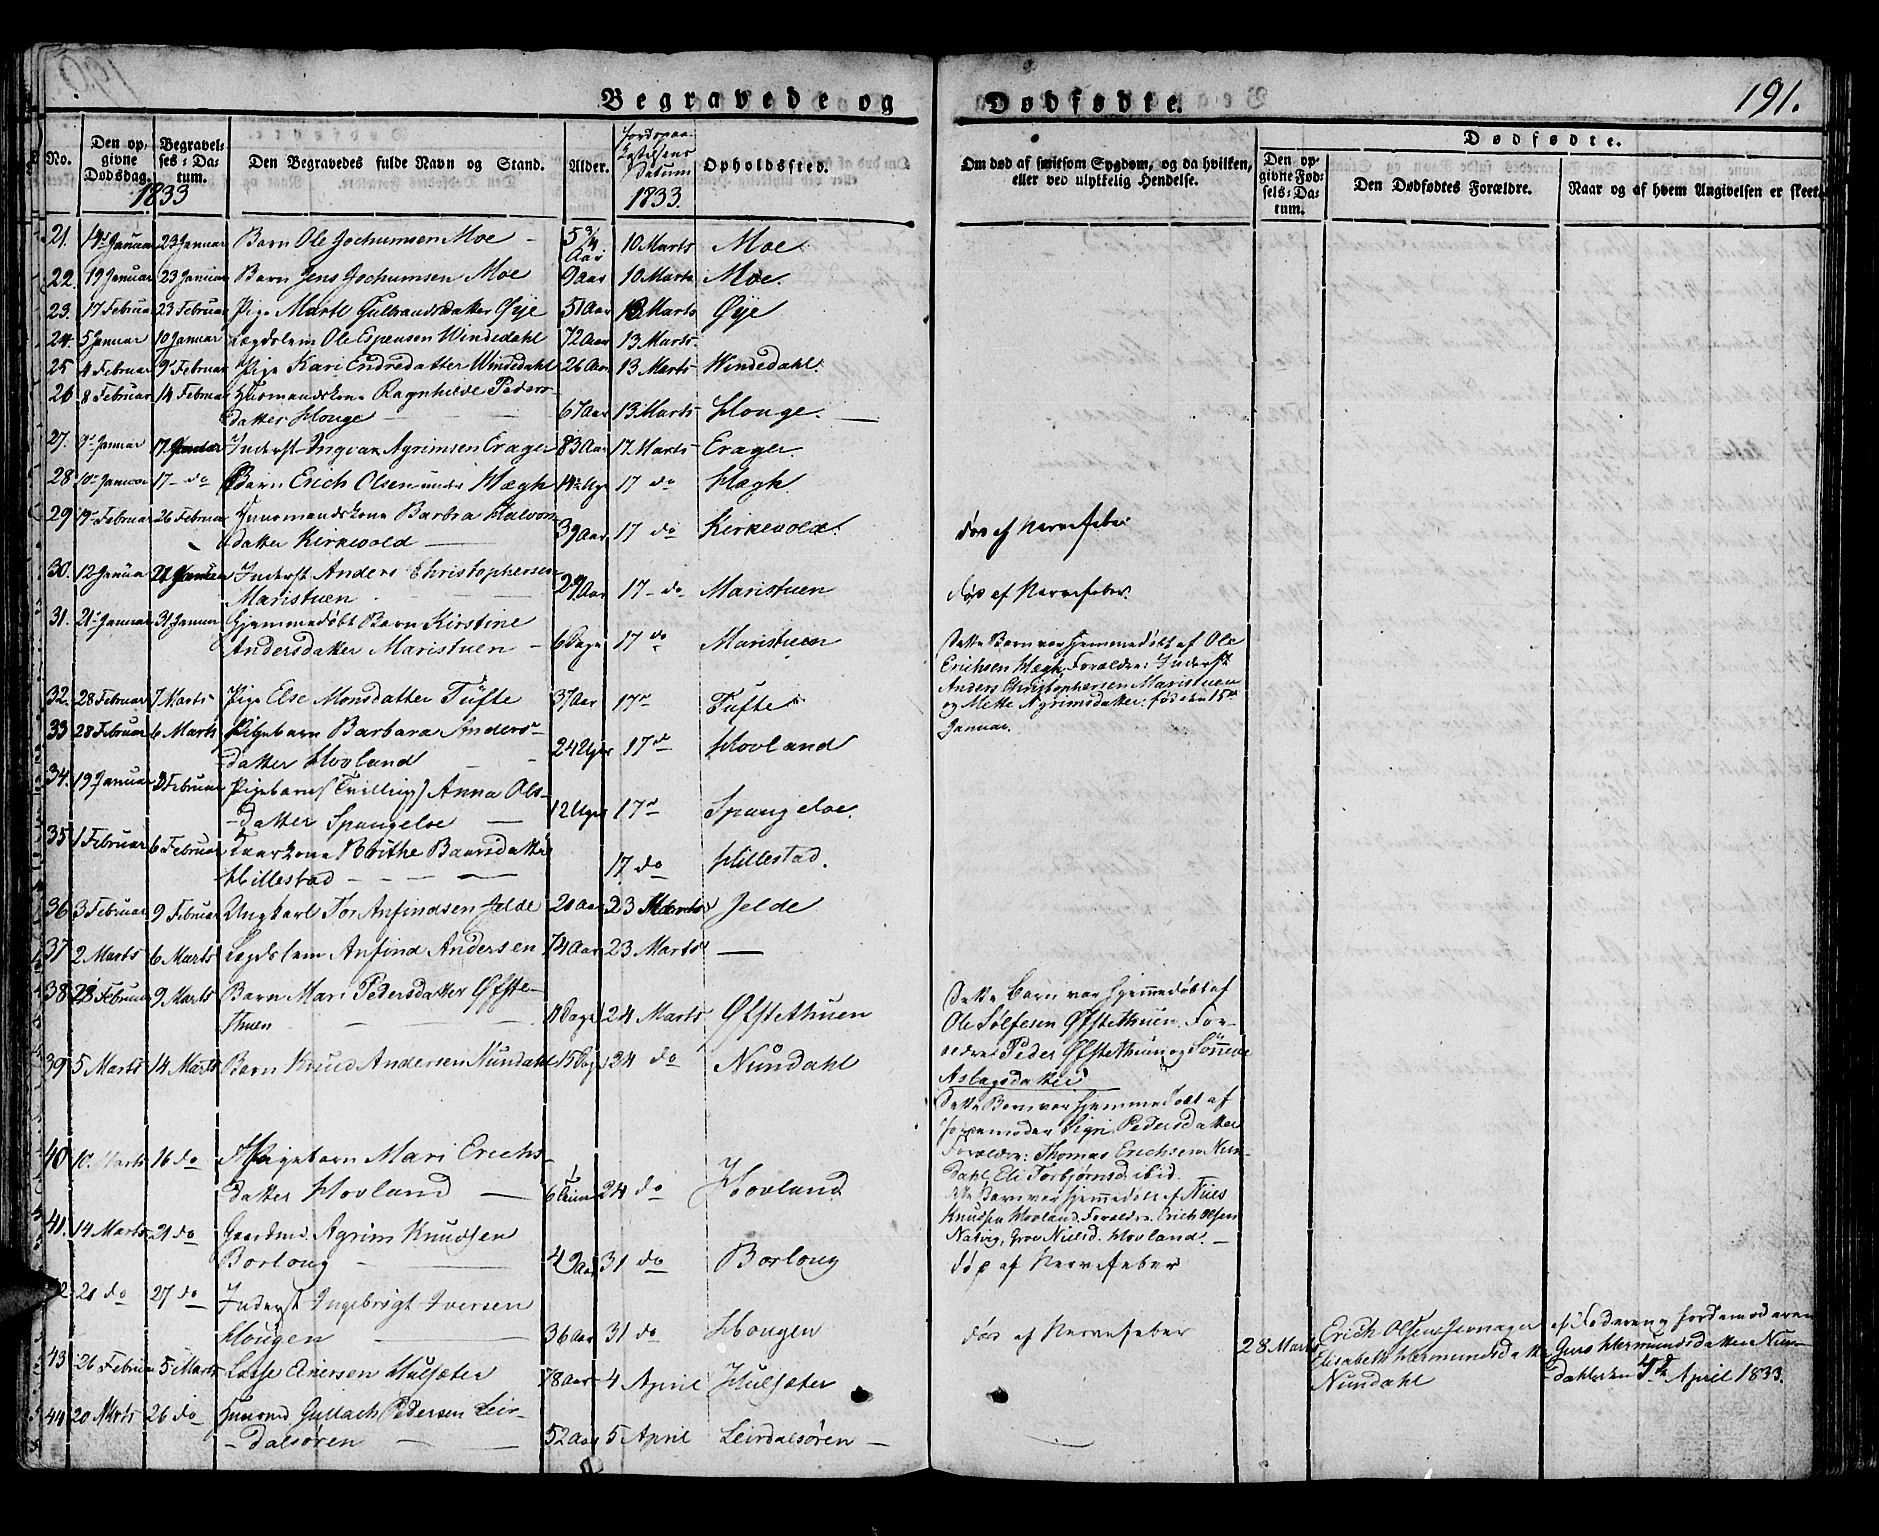 Begravede og Dødfødte. 191.
No. Den opgivne Dødsdag. Begravelses-Datum. Den Begravedes fulde Navn og Stand. Alder. Jordpaakastelsens Datum Opholdssted. Om død af smitsom Sygdom, og da hvilken, eller ved ulykkelig Hendelse. Dødfødte. Den opgivne Fødsels-Datum. Den Dødfødtes Forældre. Naar og af hvem Angivelsen er skeet
1833 1833.
21. Januar 23 Januar Barn Ole Jochumsen Moe 5 3/4 Aar 10 Marts Moe
22. 19 Januar 23 Januar Barn Jens Jochumsen Moe 9 Aar 10 Marts Moe.
23. 17 Februar 23 Februar Pige Marte Gulbrandsdatter Øye 51 Aar 13 Marts Øye
24 5 Januar 10 Januar Lægdslem Ole Espensen Windedahl 72 Aar 13 Marts
25 4 Februar 9 Februar Pige Kari Endredatter Windedahl 26 Aar 13 Marts Windedahl.
26 8 Februar 14 Februar Huusmandskone Ragnhilde Peders-
datter Houge 67 Aar 13 Marts Houge.
27. 9 Januar 17 Januar Inderst Ingvar Agrimsen Erager 83 Aar 17 Marts Erager
28 10 Januar 17 do Barn Erich Olsen Hægh 17 do Hægh.
29 19 Februar 26 Februar Huusmandskone Barbra Halvors-
datter Kirkevold 39 Aar 17 do Kirkevold. Død af Nervefeber
30. 12 Januar 21 Januar Inderst Anders Christophersen
Maristuen 29 Aar 17 do Maristuen død af Nervefeber.
31. 21 Januar 31 Januar Hjemmedøbt Barn Kirstine
Andersdatter Maristuen 6 Dage 17 do Maristuen Dette Barn var Hjemmedøbt af Ole
Erichsen Hægh, Forældre: Inderst
Anders Christophersen Maristuen
og Mette Agrimsdatter. fød den 15de
Januar.
32. 28 Februar 7 Marts Pige Else Monsdatter Tufte 37 Aar 17 Tufte
33 28 Februar 6 Marts Pigebarn Barbara Anders-
datter Hovland 24 Uger 17 Hovland
34. 19 Januar Februar Pigebarn (Tvilling) Anna Ols-
datter Spangeloe 12 Uger 17 Spangeloe.
35 1 Februar 6 Februar Brithe Baarsdatter
Hillestad 17 do Hillestad.
36 3 Februar 9 Februar Ungkarl Tor Anfindsen Jelde 20 Aar 23 Marts Jelde
37 2 Marts 6 Marts Lægdslem Anfind Andersen 74 Aar 23 Marts —
38 28 Februar 9 Marts Barn Mari Pedersdatter Øfste-
thuen Dage 24 Marts Øfstethuen Dette Barn var Hjemmedøbt af
Ole Sølfesen Øfstethuen. For-
ældre: Peder Øfstethuen og Sønneve
Aslagsdatter
39 5 Marts 14 Marts Barn Knud Andersen Nundahl 15 Dage 24 do Nundahl Dette Barn var hjemmedøbt af
Sigri Pedersdatter
Forældre: Thomas Erichsen Nun-
dahl, Eli Torbjørnsd. ibid.
40 10. Marts 16 do Pigebarn Mari Erichs-
datter Hovland 6 Timer 24 do Hovland Dette Barn var hjemmedøbt af Niels
Knudsen Hovland. Forældre. Erich Olsen
Natvig, Gro Nielsd. Hovland.
41. 14 Marts 21 do Gaardmd. Agrim Knudsen
Borloug 42 Aar 31 do Borloug død af Nervefeber
42. 20 do 27 do Inderst Ingebrigt Iversen
Hougen 36 Aar 31 do Hougen død af Nervefeber
28 Marts Erich Olsen
Elisabeth Hermundsdatter
Nundahl
af Faderen og Jordemoderen
Guro Hermundsdatter Nun-
dahl den April 1833.
43 26 Februar 5 Marts Lasse Hulsæter 78 Aar 4 April Hulsæter
44 20 Marts 26 do Huusmd. Gullach Pedersen Leir-
dalsøren 52 Aar 5 April Leirdalsøren